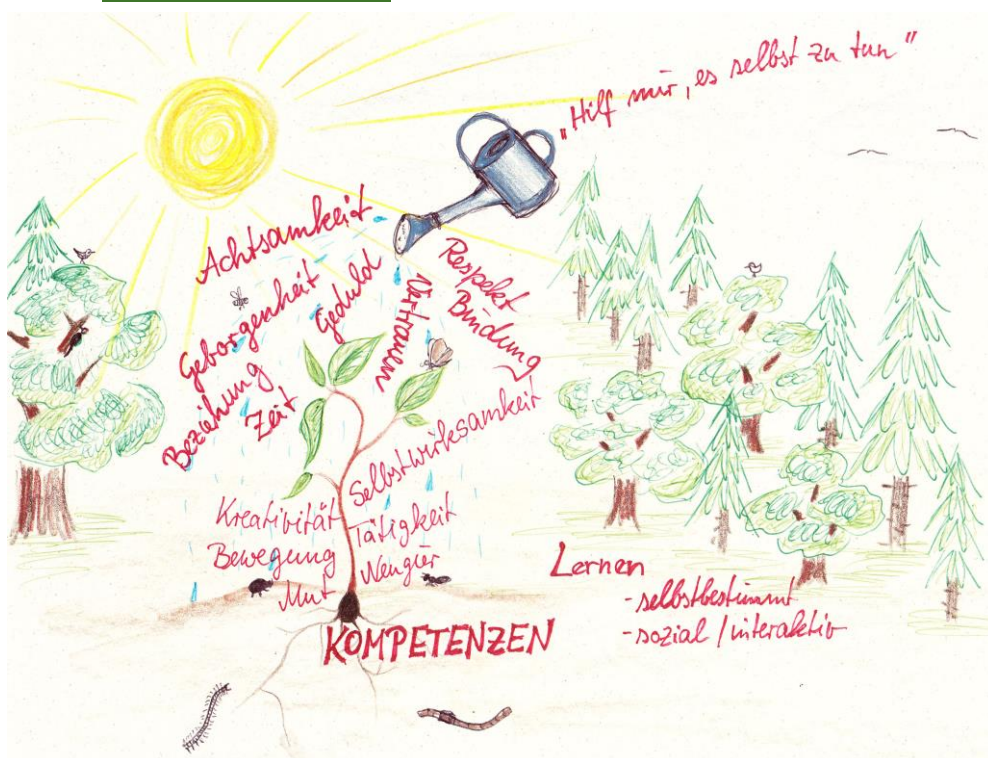 „Hilf mir, es selbst zu tun"
Achtsamkeit
Geborgenheit
Geduld
Vertrauen
Respekt
Bindung
Beziehung
Zeit
Selbstwirksamkeit
Kreativität
Tätigkeit
Bewegung
Neugier
Mut
KOMPETENZEN
Lernen
- selbstbestimmt
- sozial / interaktiv